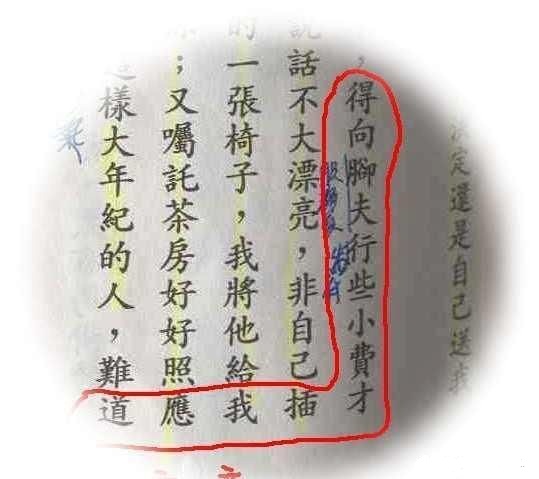 決定還是自己送我
，得向腳夫行些小費才
說話不大漂亮，非自己插
的一張椅子，我將他給我
；又囑託茶房好好照應
這樣大年紀的人，難道